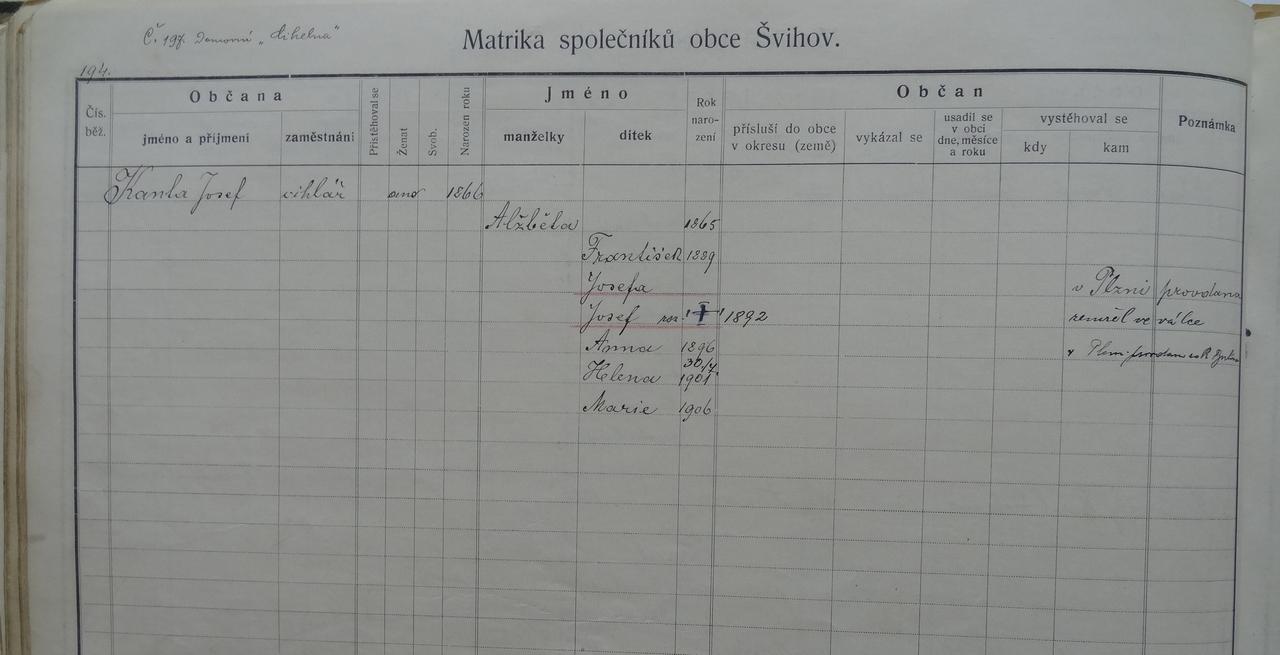 Č. 197. Domovní „Cihelna"
Matrika společníků obce Švihov.
194.
Čís. běž.
Občana
jméno a příjmení
zaměstnání
Přistěhoval se
Ženat
Svob.
Narozen roku
Jméno
manželky
dítek
Rok naro- zení
Občan
přísluší do obce v okresu (země)
vykázal se
usadil se v obci dne, měsíce a roku
vystěhoval se
kdy
kam
Poznámka
Kanta Josef cihlář ano 1866
Alžběta 1865
František 1889
Josefa v Plzni provdana
Josef nar. 1892 zemřel ve válce
Anna 1896 v Plzni provdana
30/7.
Helena 1901
Marie 1906